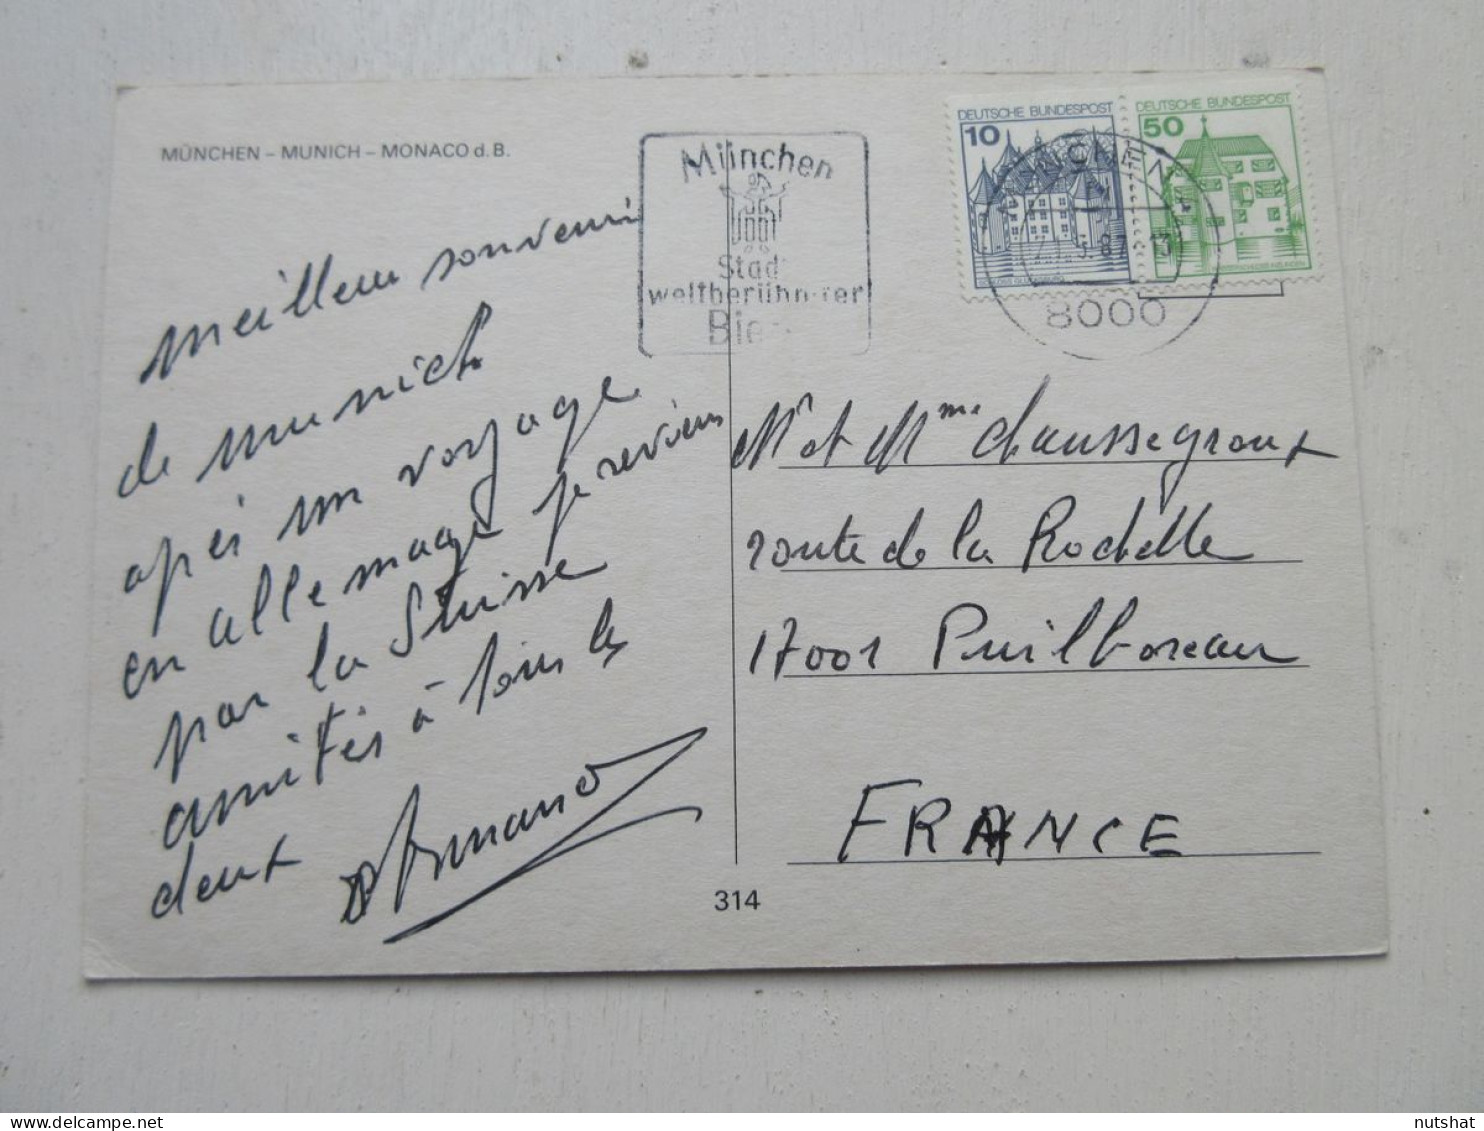 MÜNCHEN – MUNICH – MONACO d. B.
Meilleur souvenir
de munich
après un voyage
en allemagne je reviens
par la Suisse
amitiés à tous les
deux Armand
München
Stadt
weltberühmter
Bier
DEUTSCHE BUNDESPOST
10
DEUTSCHE BUNDESPOST
50
MÜNCHEN
5. 87 - 13
8000
Mr et Mme Chaussegroux
route de la Rochelle
17001 Puilboreau
FRANCE
314
nutshat